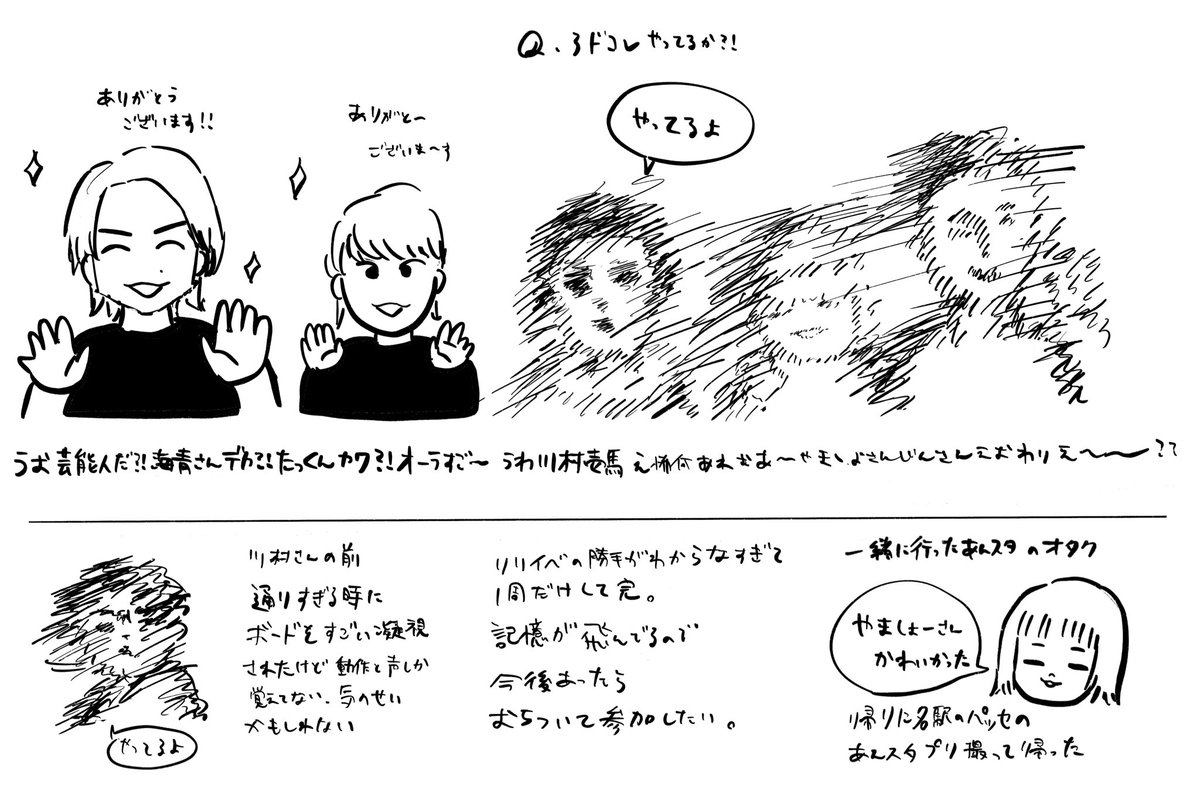 Q. 3ドコレやってるか?!
ありがとう
ございます!!
ありがと〜
ございま〜す
やってるよ
うお芸能人だ?!海青さんデカ?!たっくんカワ?!オーラすご〜 うわ川村壱馬 え怖何あれおあ〜やましょさんじんさんえおわりえ〜〜??
川村さんの前
通りすぎる時に
ボードをすごい凝視
されたけど動作と声しか
覚えてない、気のせい
かもしれない
やってるよ
リリイベの勝手がわからなすぎて
1周だけして完。
記憶が飛んでるので
今後あったら
おちついて参加したい。
一緒に行ったあんスタのオタク
やましょーさん
かわいかった
帰りに名駅のパッセの
あんスタプリ撮って帰った